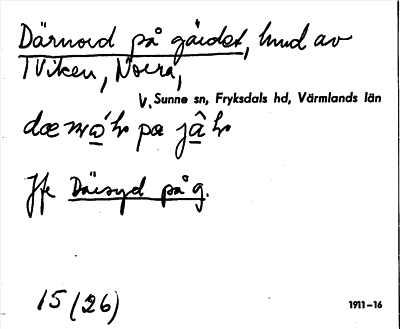 Därnord på gärdet, hmd av
Viken, Noera,
V. Sunne sn, Fryksdals hd, Värmlands län
pa
Jfr Därsyd på g.
15 (26)
1911-16